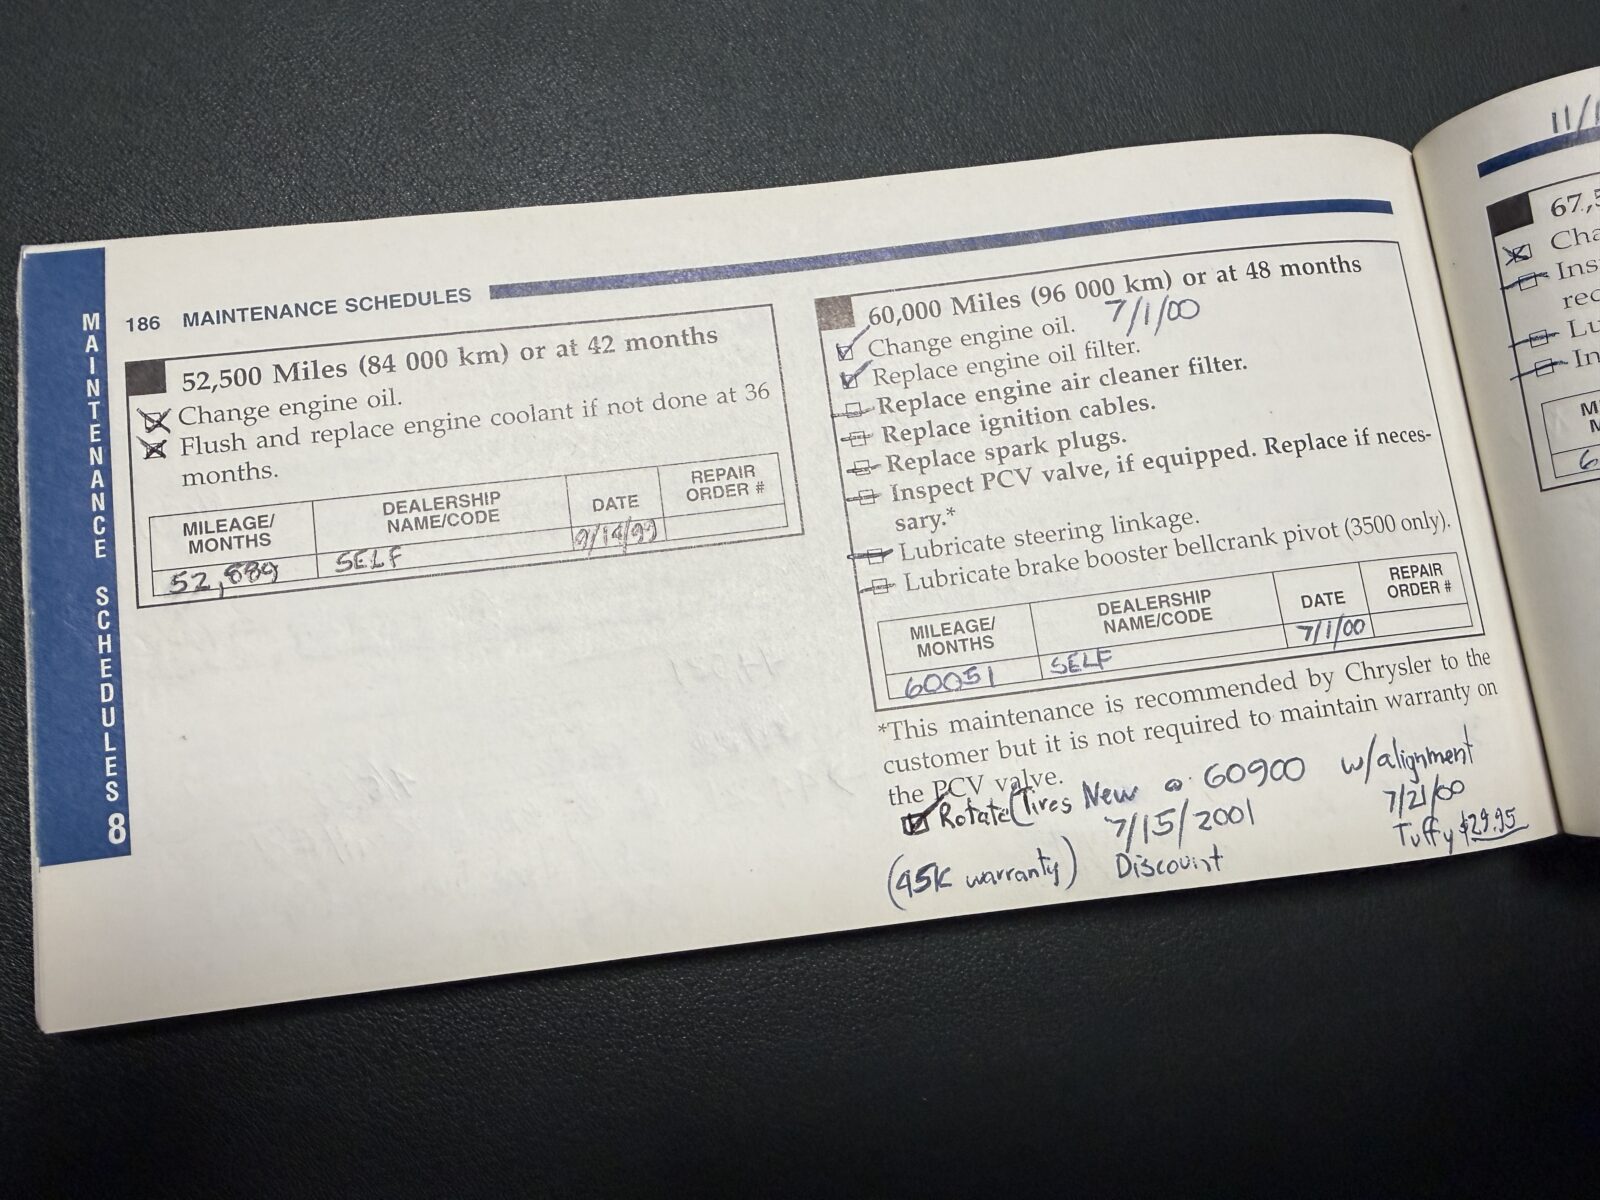 MAINTENANCE SCHEDULES
8
186 MAINTENANCE SCHEDULES
52,500 Miles (84 000 km) or at 42 months
Change engine oil.
Flush and replace engine coolant if not done at 36
months.
MILEAGE/
MONTHS
DEALERSHIP
NAME/CODE
DATE
REPAIR
ORDER #
52,889
SELF
9/14/99
60,000 Miles (96 000 km) or at 48 months
Change engine oil. 7/1/00
Replace engine oil filter.
Replace engine air cleaner filter.
Replace ignition cables.
Replace spark plugs.
Inspect PCV valve, if equipped. Replace if neces-
sary.*
Lubricate steering linkage.
Lubricate brake booster bellcrank pivot (3500 only).
MILEAGE/
MONTHS
DEALERSHIP
NAME/CODE
DATE
REPAIR
ORDER #
60051
SELF
7/1/00
*This maintenance is recommended by Chrysler to the
customer but it is not required to maintain warranty on
the PCV valve.
Rotate (Tires New @ 60900 w/alignment
7/15/2001
7/21/00
(45K warranty) Discount
Tuffy $29.95
11/1
67,5
Cha
Ins
rec
Lu
In
M
M
6